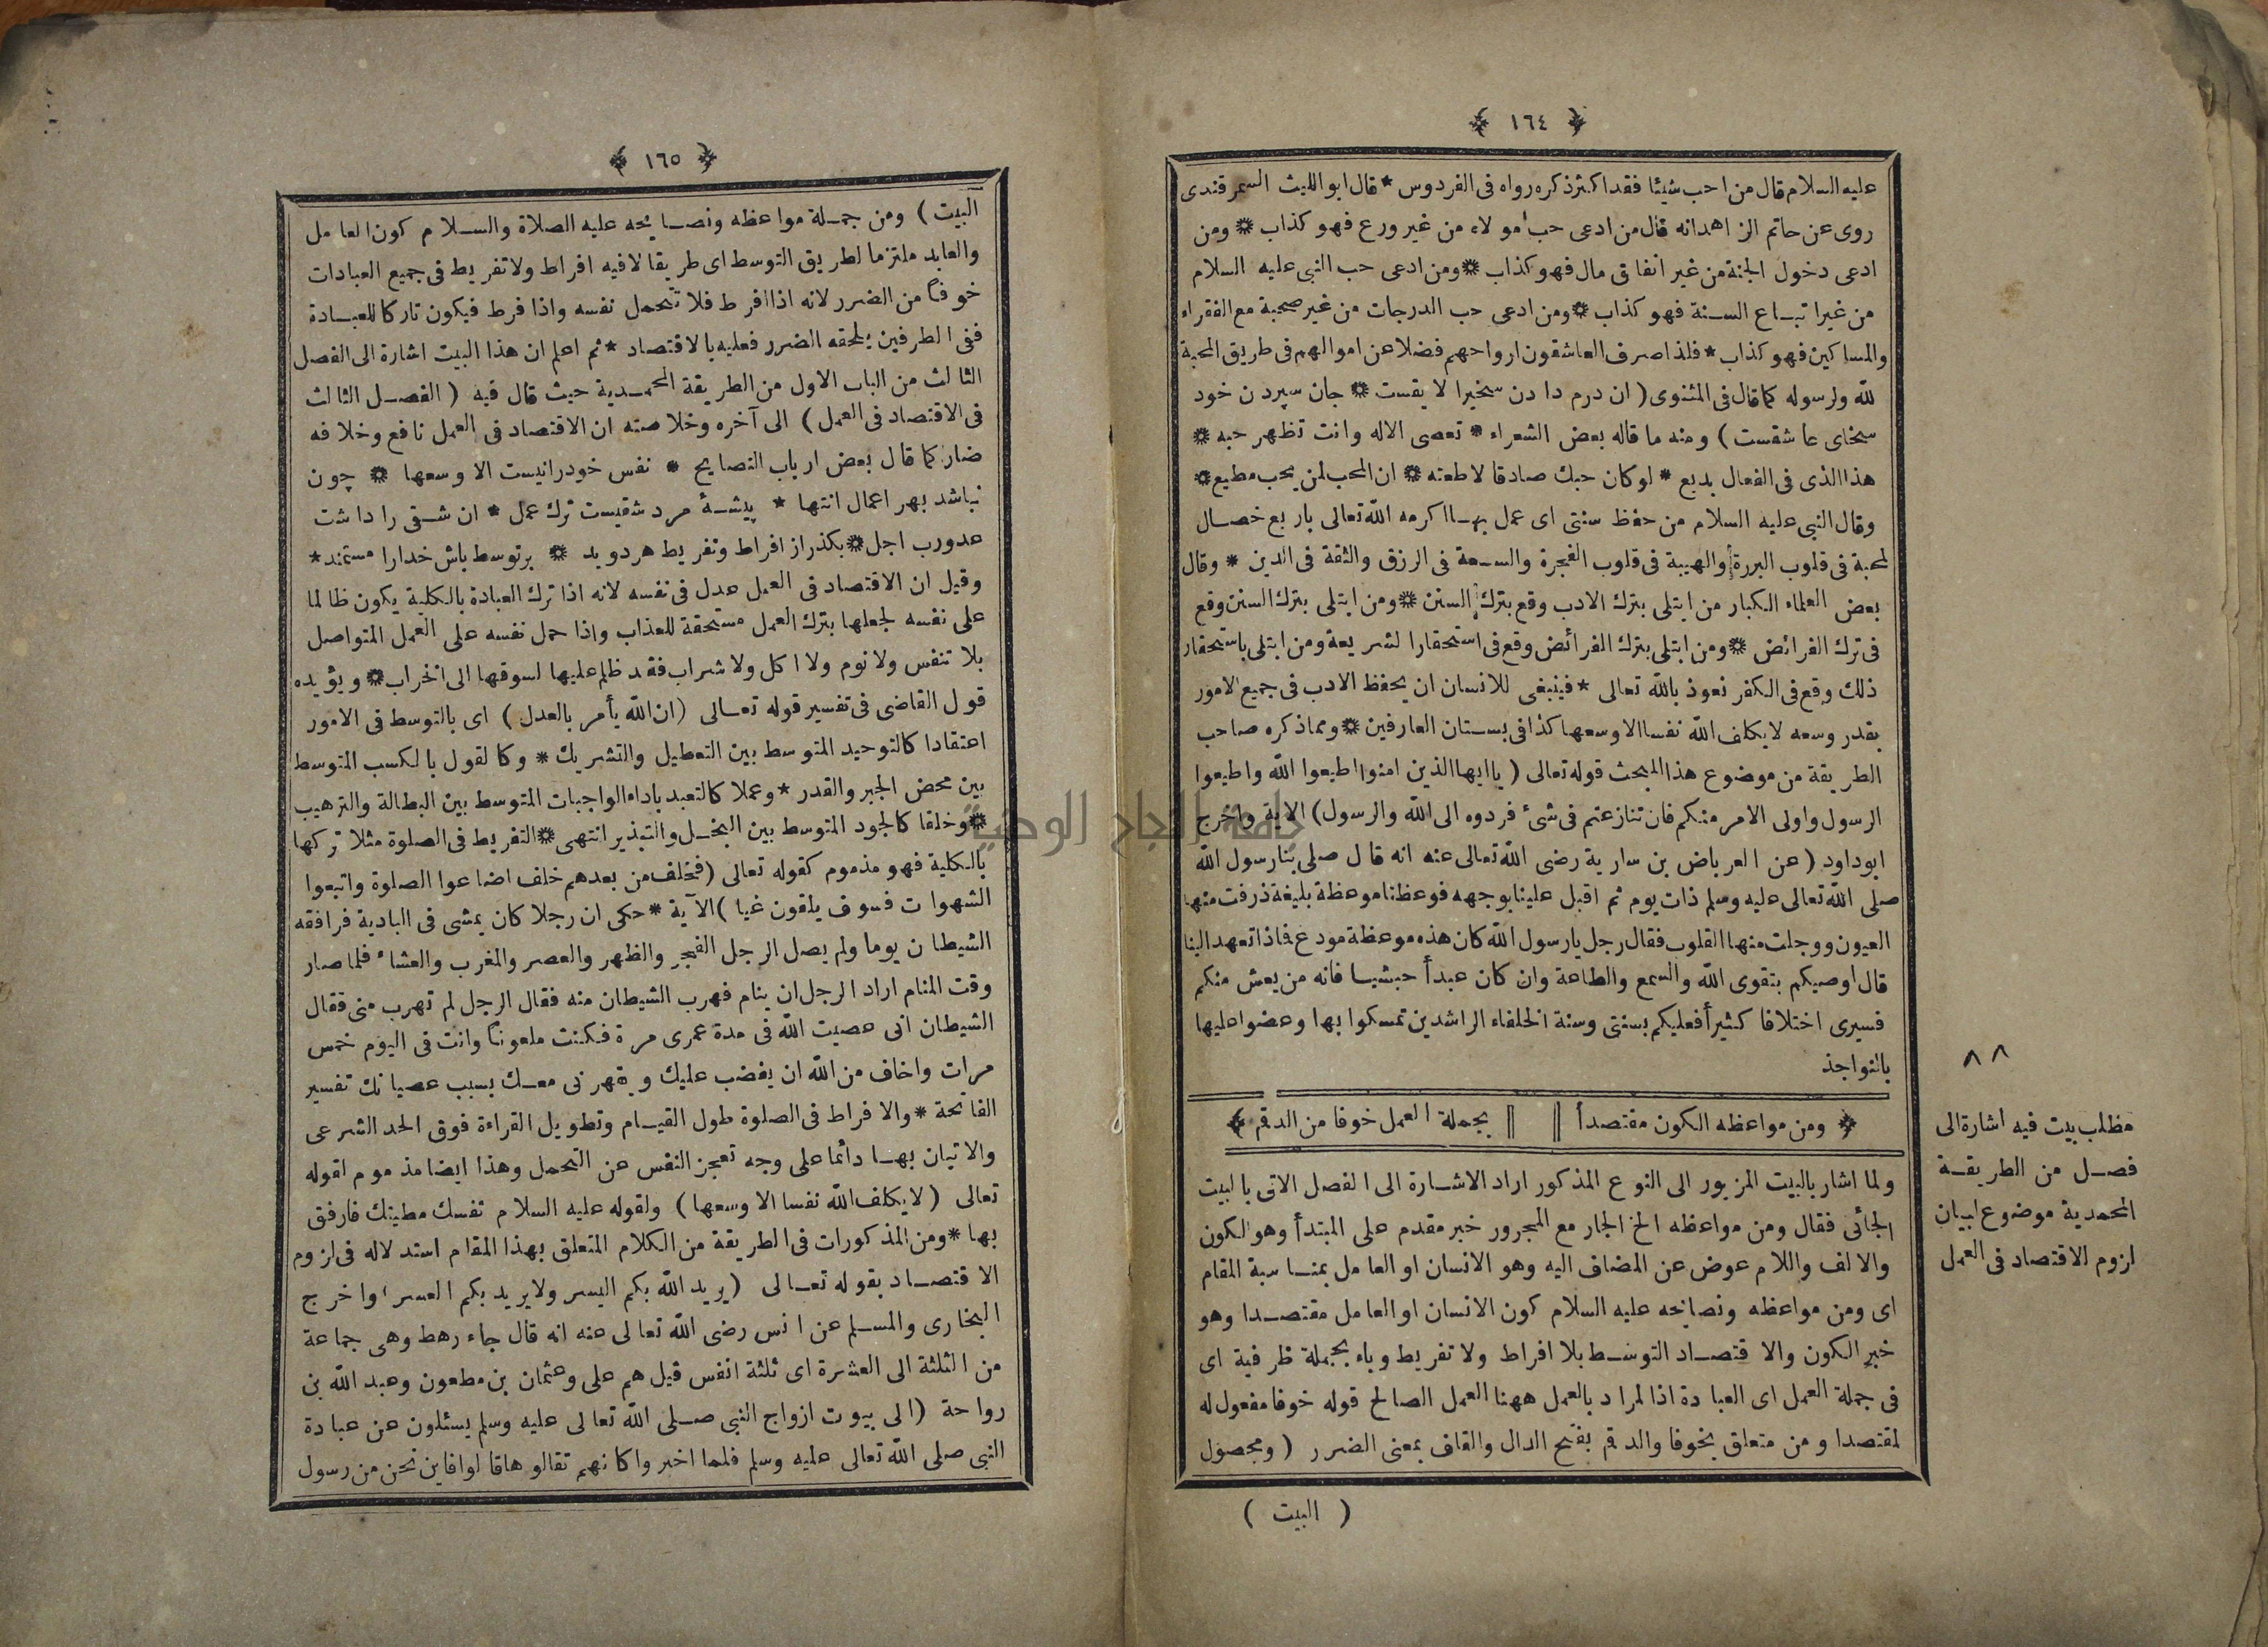 ﴿ ١٦٤ ﴾
عليه السلام قال من احب شيئا فقد اكثر ذكره رواه فى الفردوس * قال ابو الليث السمرقندى
روى عن حاتم الزاهد انه قال من ادعى حب مولاه من غير ورع فهو كذاب * ومن
ادعى دخول الجنة من غير انفاق مال فهو كذاب * ومن ادعى حب النبى عليه السلام
من غير اتباع السنة فهو كذاب * ومن ادعى حب الدرجات من غير صحبة مع الفقراء
والمساكين فهو كذاب * فلذا صرف العاشقون ارواحهم فضلا عن اموالهم فى طريق المحبة
لله ولرسوله كما قال فى المثنوى ( ان درم دادن سخيرا لايقست * جان سپردن خود
سخاى عاشقست ) ومنه ما قاله بعض الشعراء * تعصى الاله وانت تظهر حبه *
هذا الذى فى الفعال بديع * لو كان حبك صادقا لاطعته * ان المحب لمن يحب مطيع *
وقال النبى عليه السلام من حفظ سنتى اى عمل بها اكرمه الله تعالى باربع خصال
لمحبة فى قلوب البررة والهيبة فى قلوب الفجرة والسعة فى الرزق والثقة فى الدين * وقال
بعض العلماء الكبار من ابتلى بترك الادب وقع بترك السنن * ومن ابتلى بترك السنن وقع
فى ترك الفرائض * ومن ابتلى بترك الفرائض وقع فى استحقارا لشريعة ومن ابتلى باستحقار
ذلك وقع فى الكفر نعوذ بالله تعالى * فينبغى للانسان ان يحفظ الادب فى جميع الامور
بقدر وسعه لايكلف الله نفسا الا وسعها كذا فى بستان العارفين * ومماذكره صاحب
الطريقة من موضوع هذا المبحث قوله تعالى ( ياايها الذين امنوا اطيعوا الله واطيعوا
الرسول واولى الامر منكم فان تنازعتم فى شئ فردوه الى الله والرسول ) الاية واخرج
ابوداود ( عن العرباض بن سارية رضى الله تعالى عنه انه قال صلى بنا رسول الله
صلى الله تعالى عليه وسلم ذات يوم ثم اقبل علينا بوجهه فوعظنا موعظة بليغة ذرفت منها
العيون ووجلت منها القلوب فقال رجل يارسول الله كان هذه موعظة مودع فاذا تعهد الينا
قال اوصيكم بتقوى الله والسمع والطاعة وان كان عبدأ حبشيا فانه من يعش منكم
فسيرى اختلافا كثيرأ فعليكم بسنتى وسنة الخلفاء الراشدين تمسكوا بها وعضوا عليها
بالنواجذ
﴿ ومن مواعظه الكون مقتصدأ || || بجملة العمل خوفا من الدقم ﴾
ولما اشار بالبيت المزبور الى النوع المذكور اراد الاشارة الى الفصل الاتى بالبيت
الجائى فقال ومن مواعظه الخ الجار مع المجرور خبر مقدم على المبتدأ وهو الكون
والالف واللام عوض عن المضاف اليه وهو الانسان او العامل بمناسبة المقام
اى ومن مواعظه ونصايحه عليه السلام كون الانسان او العامل مقتصدا وهو
خبر الكون والاقتصاد التوسط بلا افراط ولا تفريط وباء بجملة ظرفية اى
فى جملة العمل اى العبادة اذا لمراد بالعمل ههنا العمل الصالح قوله خوفا مفعول له
لمقتصدا ومن متعلق بخوفا والدقم بفتح الدال والقاف بمعنى الضرر ( ومحصول
( البيت )
٨٨
مطلب بيت فيه اشارة الى
فصل من الطريقة
المحمدية موضوع لبيان
لزوم الاقتصاد فى العمل
﴿ ١٦٥ ﴾
البيت ) ومن جملة مواعظه ونصايحه عليه الصلاة والسلام كون العامل
والعابد ملتزما لطريق التوسط اى طريقا لافيه افراط ولا تفريط فى جميع العبادات
خوفا من الضرر لانه اذا افرط فلا تتحمل نفسه واذا فرط فيكون تاركا للعبادة
ففى الطرفين يلحقه الضرر فعليه بالاقتصاد * ثم اعلم ان هذا البيت اشارة الى الفصل
الثالث من الباب الاول من الطريقة المحمدية حيث قال فيه ( الفصل الثالث
فى الاقتصاد فى العمل ) الى آخره وخلاصته ان الاقتصاد فى العمل نافع وخلافه
ضار كما قال بعض ارباب النصايح * نفس خودرا نيست الا وسعها * چون
نباشد بهر اعمال انتها * پيشۀ مرد شقيست ترك عمل * ان شقى را داشت
مدورب اجل * بكذر از افراط وتفريط هر دو بد * بر توسط باش خدارا مستمند *
وقيل ان الاقتصاد فى العمل عدل فى نفسه لانه اذا ترك العبادة بالكلية يكون ظالما
على نفسه لجعلها بترك العمل مستحقة للعذاب واذا حمل نفسه على العمل المتواصل
بلا تنفس ولا نوم ولا اكل ولا شراب فقد ظلم عليها لسوقها الى الخراب * ويؤيده
قول القاضى فى تفسير قوله تعالى ( ان الله يأمر بالعدل ) اى بالتوسط فى الامور
اعتقادا كالتوحيد المتوسط بين التعطيل والتشريك * وكالقول بالكسب المتوسط
بين محض الجبر والقدر * وعملا كالتعبد باداء الواجبات المتوسط بين البطالة والترهيب
* وخلقا كالجود المتوسط بين البخل والتبذير انتهى * التفريط فى الصلوة مثلا تركها
بالكلية فهو مذموم كقوله تعالى ( فخلف من بعدهم خلف اضاعوا الصلوة واتبعوا
الشهوات فسوف يلقون غيا ) الآية * حكى ان رجلا كان يمشى فى البادية فرافقه
الشيطان يوما ولم يصل الرجل الفجر والظهر والعصر والمغرب والعشاء فلما صار
وقت المنام اراد الرجل ان ينام فهرب الشيطان منه فقال الرجل لم تهرب منى فقال
الشيطان انى عصيت الله فى مدة عمرى مرة فكنت ملعونا وانت فى اليوم خمس
مرات واخاف من الله ان يغضب عليك ويقهرنى معك بسبب عصيانك تفسير
الفاتحة * والافراط فى الصلوة طول القيام وتطويل القراءة فوق الحد الشرعى
والاتيان بها دائما على وجه تعجز النفس عن التحمل وهذا ايضا مذموم لقوله
تعالى ( لايكلف الله نفسا الا وسعها ) ولقوله عليه السلام نفسك مطيتك فارفق
بها * ومن المذكورات فى الطريقة من الكلام المتعلق بهذا المقام استدلاله فى لزوم
الاقتصاد بقوله تعالى ( يريد الله بكم اليسر ولا يريد بكم العسر ) واخرج
البخارى والمسلم عن انس رضى الله تعالى عنه انه قال جاء رهط وهى جماعة
من الثلثة الى العشرة اى ثلثة انفس قيل هم على وعثمان بن مطعون وعبد الله بن
رواحة ( الى بيوت ازواج النبى صلى الله تعالى عليه وسلم يسئلون عن عبادة
النبى صلى الله تعالى عليه وسلم فلما اخبروا كانهم تقالوها قالوا فاين نحن من رسول